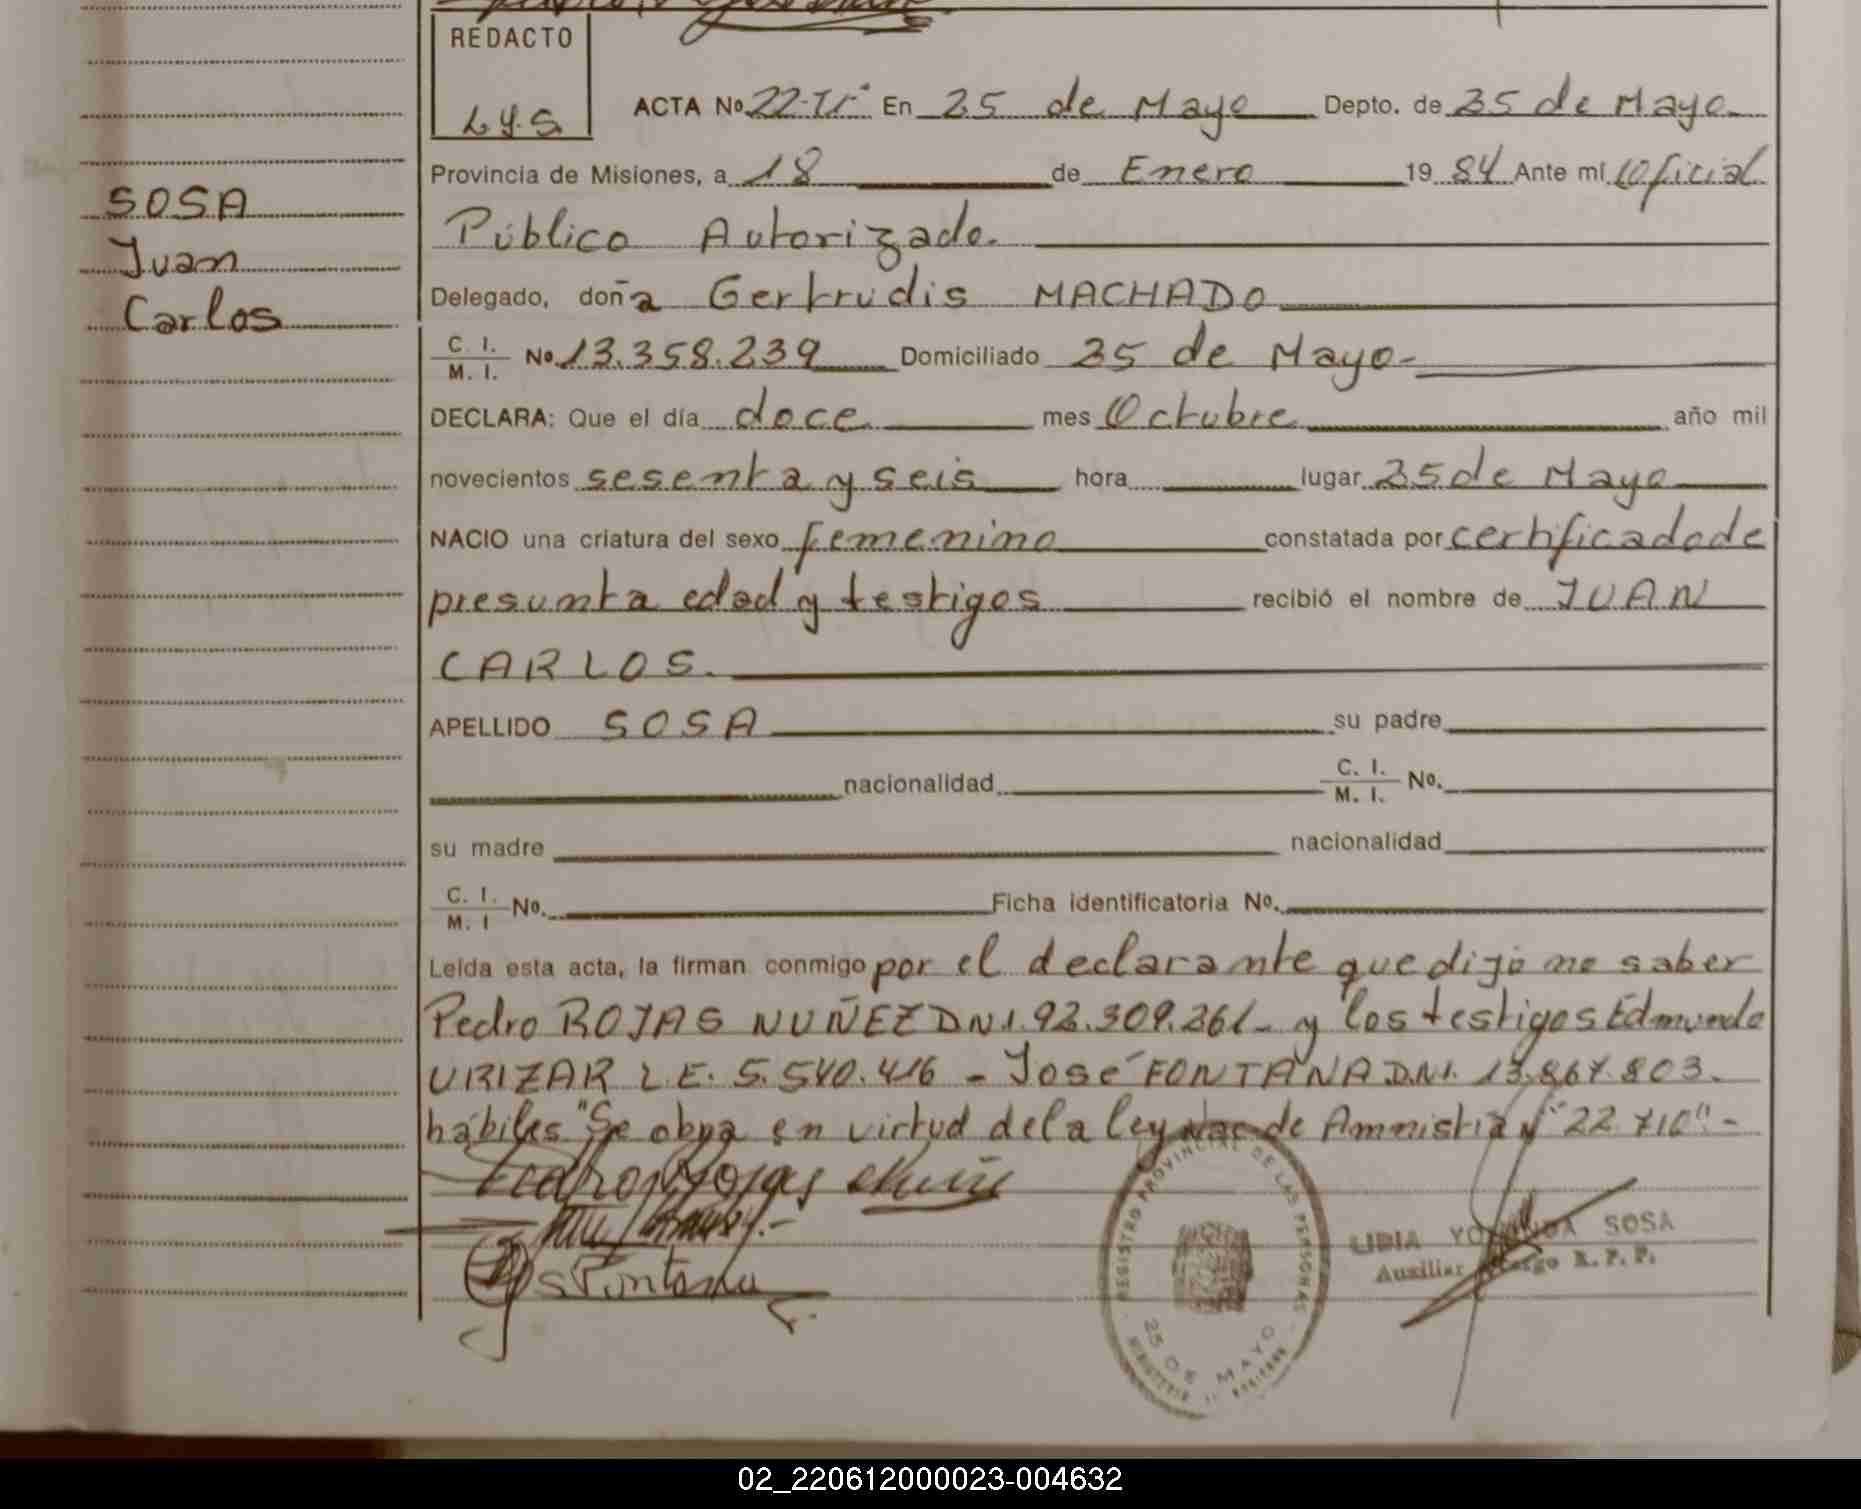 REDACTO
L.Y.S
ACTA No 22-Tº En 25 de Mayo Depto. de 25 de Mayo.
Provincia de Misiones, a 18 de Enero 19 84 Ante mí Oficial
SOSA
Público Autorizado.
Juan
Delegado, doña Gertrudis MACHADO
Carlos
C. I.
M. I. No 13.358.239 Domiciliado 25 de Mayo-
DECLARA: Que el día doce mes Octubre año mil
novecientos sesenta y seis hora lugar 25 de Mayo
NACIO una criatura del sexo femenino constatada por certificado de
presunta edad y testigos recibió el nombre de JUAN
CARLOS.
APELLIDO SOSA su padre
nacionalidad C. I.
M. I. No.
su madre nacionalidad
C. I.
M. I No. Ficha identificatoria No.
Leída esta acta, la firman conmigo por el declarante que dijo no saber
Pedro ROJAS NUÑEZ DNI. 92.309.261- y los testigos Edmundo
URIZAR L.E. 5.540.416 - José FONTANA D.N.I. 13.867.803.
hábiles "Se obra en virtud de la ley de Amnistia 22.710" -
Pedro Rojas Nuñe
Fontana
REGISTRO PROVINCIAL DE LAS PERSONAS
25 DE MAYO
LIDIA YOLANDA SOSA
Auxiliar a Cargo R. P. P.
02_220612000023-004632